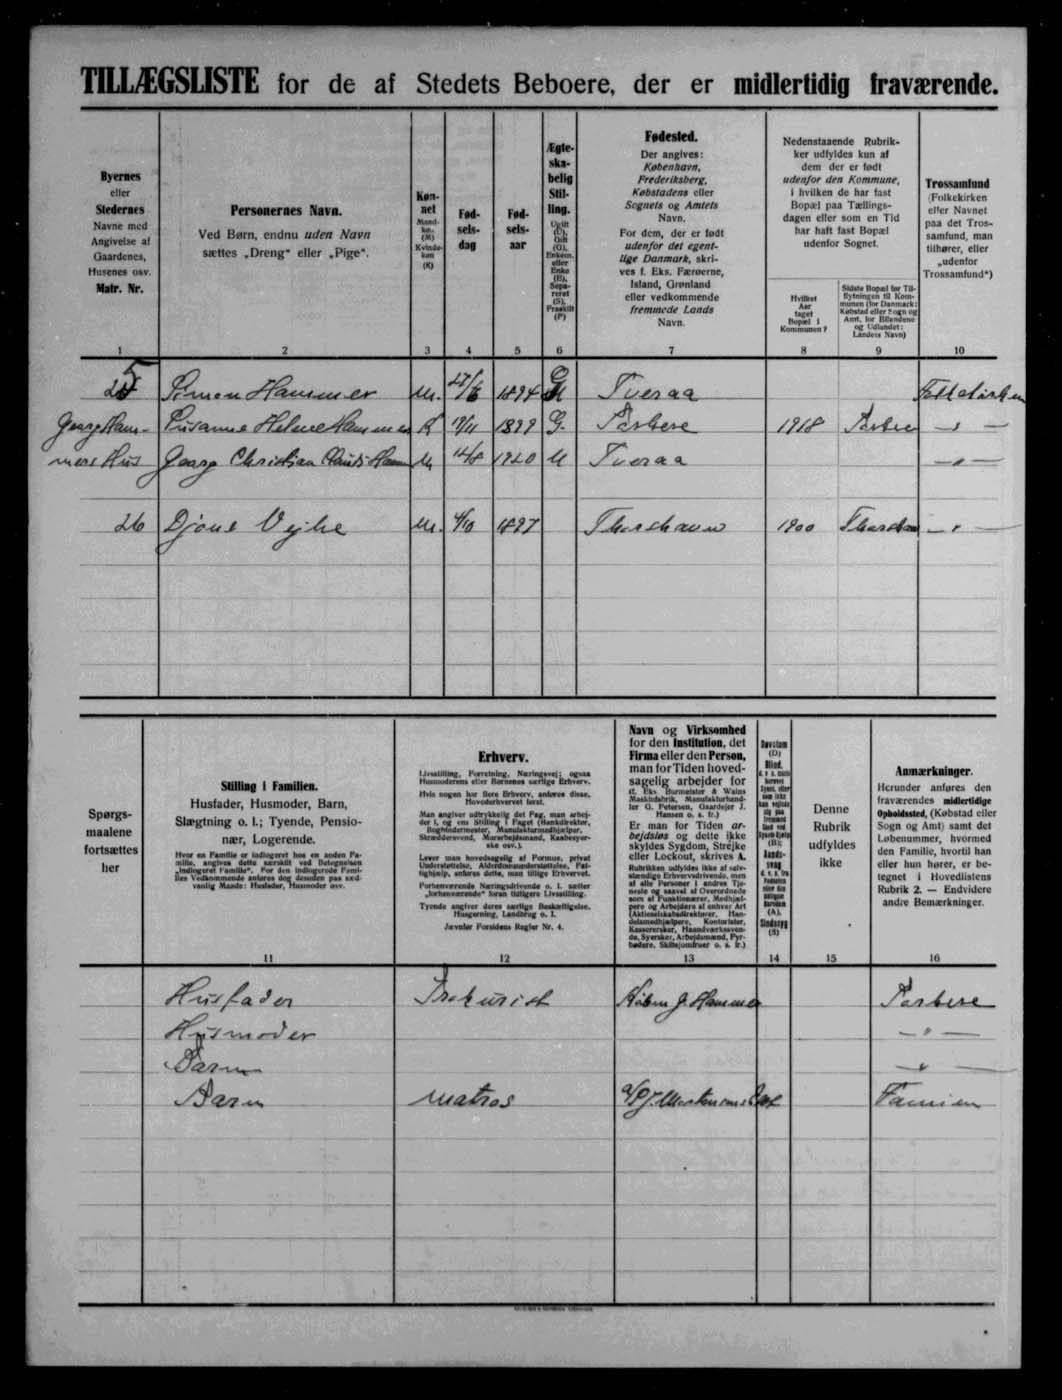 TILLÆGSLISTE for de af Stedets Beboere, der er midlertidig fraværende.
Byernes
eller
Stedernes
Navne med
Angivelse af
Gaardenes,
Husenes osv.
Matr. Nr.
Personernes Navn.
Ved Børn, endnu uden Navn
sættes „Dreng“ eller „Pige“.
Køn-
net
Mand-
køn
(M)
Kvinde-
køn
(K)
Fød-
sels-
dag
Fød-
sels-
aar
Ægte-
ska-
belig
Stil-
ling.
Ugift
(U),
Gift
(G),
Enkem.
eller
Enke
(E),
Sepa-
reret
(S),
Fraskilt
(F)
Fødested.
Der angives:
København,
Frederiksberg,
Købstadens eller
Sognets og Amtets
Navn.
For dem, der er født
udenfor det egent-
lige Danmark, skri-
ves f. Eks. Færøerne,
Island, Grønland
eller vedkommende
fremmede Lands
Navn.
Nedenstaaende Rubrik-
ker udfyldes kun af
dem der er født
udenfor den Kommune,
i hvilken de har fast
Bopæl paa Tællings-
dagen eller som en Tid
har haft fast Bopæl
udenfor Sognet.
Hvilket
Aar
taget
Bopæl i
Kommunen?
Sidste Bopæl før Til-
flytningen til Kom-
munen (for Danmark:
Købstad eller Sogn og
Amt, for Bilandene
og Udlandet:
Landets Navn)
Trossamfund
(Folkekirken
eller Navnet
paa det Tros-
samfund, man
tilhører, eller
„udenfor
Trossamfund“)
1 2 3 4 5 6 7 8 9 10
25 Simon Hammer M. 1894 G Tveraa Folkekirken
Georg Ham- Susanne Helene Hammer K 1899 G. Porkere 1918 Porkere — " —
mers Hus Georg Christian M 1920 U Tveraa — " —
26 Djone Vejhe M. 4/10 1897 Thorshavn 1900 Thorshavn — " —
Spørgs-
maalene
fortsættes
her
Stilling i Familien.
Husfader, Husmoder, Barn,
Slægtning o. l.; Tyende, Pensio-
nær, Logerende.
Hvor en Familie er indlogeret hos en anden Fa-
milie, angives dette særskilt ved Betegnelsen
„indlogeret Familie“. For den indlogerede Fami-
lies Vedkommende anføres dog desuden paa sæd-
vanlig Maade: Husfader, Husmoder osv.
Erhverv.
Livsstilling, Forretning, Næringsvej; ogsaa
Husmoderens eller Børnenes særlige Erhverv.
Hvis nogen har flere Erhverv, anføres disse,
Hovederhvervet først.
Man angiver udtrykkelig det Fag, man arbej-
der i, og ens Stilling i Faget (Bankdirektør,
Bogbindermester, Manufakturmedhjælper,
Skræddersvend, Murarbejdsmand, Kaabesyer-
ske osv.).
Lever man hovedsagelig af Formue, privat
Understøttelse, Alderdomsunderstøttelse, Fat-
tighjælp, anføres dette, man tillige Erhvervet.
Forhenværende Næringsdrivende o. l. sætter
„forhenværende“ foran tidligere Livsstilling.
Tyende angiver deres særlige Beskæftigelse,
Husgerning, Landbrug o. l.
Jævnfør Forsidens Regler Nr. 4.
Navn og Virksomhed
for den Institution, det
Firma eller den Person,
man for Tiden hoved-
sagelig arbejder for
(f. Eks. Burmeister & Wains
Maskinfabrik, Manufakturhand-
ler G. Petersen, Gaardejer J.
Hansen o. s. fr.)
Er man for Tiden ar-
bejdsløs og dette ikke
skyldes Sygdom, Strejke
eller Lockout, skrives A.
Rubrikken udfyldes ikke af selv-
stændige Erhvervsdrivende, men
af alle Personer i andres Tje-
neste og saavel af Overordnede
som af Funktionærer, Medhjæl-
pere og Arbejdere af enhver Art
(Aktieselskabsdirektører, Han-
delsmedhjælpere, Kontorister,
Kassererskere, Haandværkssven-
de, Syersker, Arbejdsmænd, Fyr-
bødere, Skibsjomfruer o. s. fr.)
Døvstum
(D)
Blind,
(B);
Aands-
svag
(A),
Sindssyg
(S)
Denne
Rubrik
udfyldes
ikke
Anmærkninger.
Herunder anføres den
fraværendes midlertidige
Opholdssted, (Købstad eller
Sogn og Amt) samt det
Løbenummer, hvormed
den Familie, hvortil han
eller hun hører, er be-
tegnet i Hovedlistens
Rubrik 2. — Endvidere
andre Bemærkninger.
11 12 13 14 15 16
Husfader Prokurist Købm J. Hammer Porkere
Husmoder — " —
Barn — " —
Barn matros